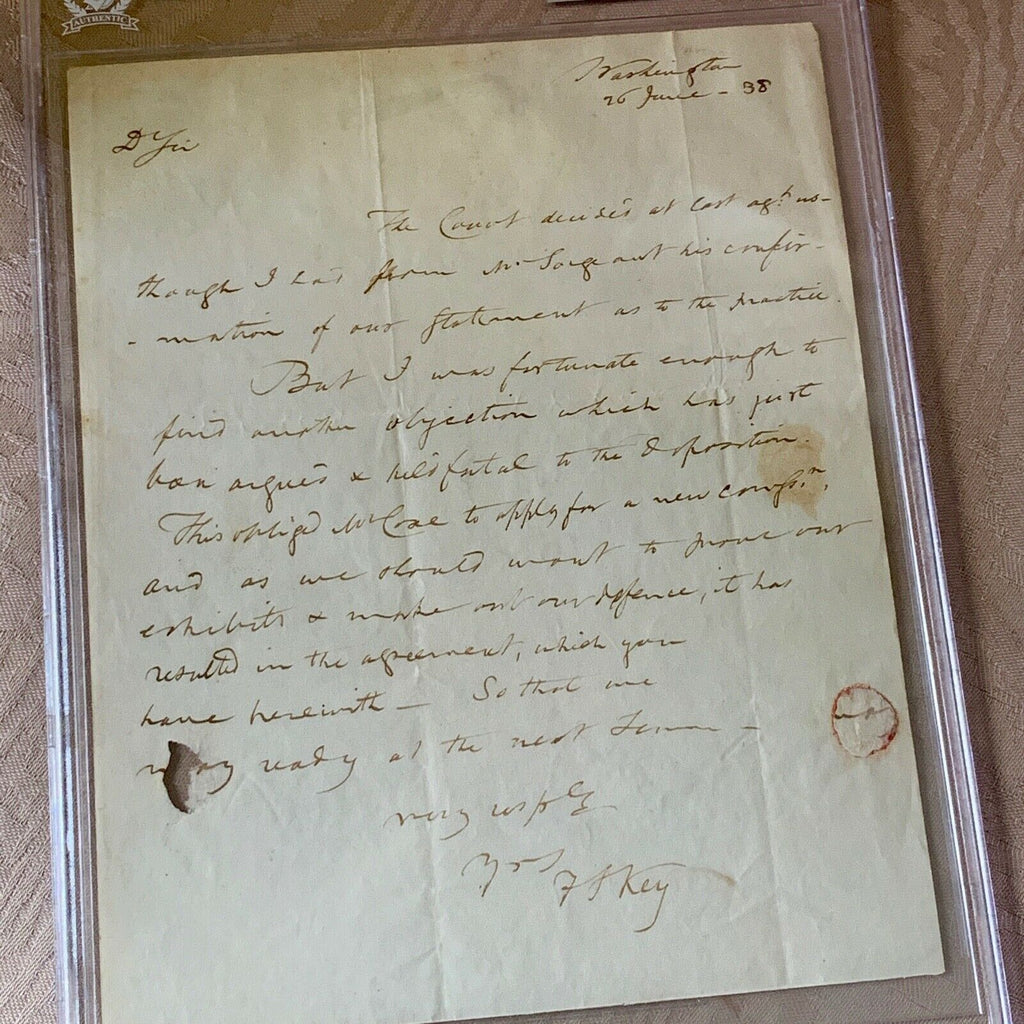 AUTHENTIC
Washington
26 June - 38
Dr Sir
The Court decided at last agt us -
though I had from Mr Sergeant his confir -
- mation of our statement as to the practice.
But I was fortunate enough to
find another objection which has just
been argued & held fatal to the deposition.
This obliged Mr Coxe to apply for a new comssn,
and as we should want to prove our
exhibits & make out our defence, it has
resulted in the agreement, which you
have herewith - So that we
may ready at the next Term -
very resply
Yrs
F S Key